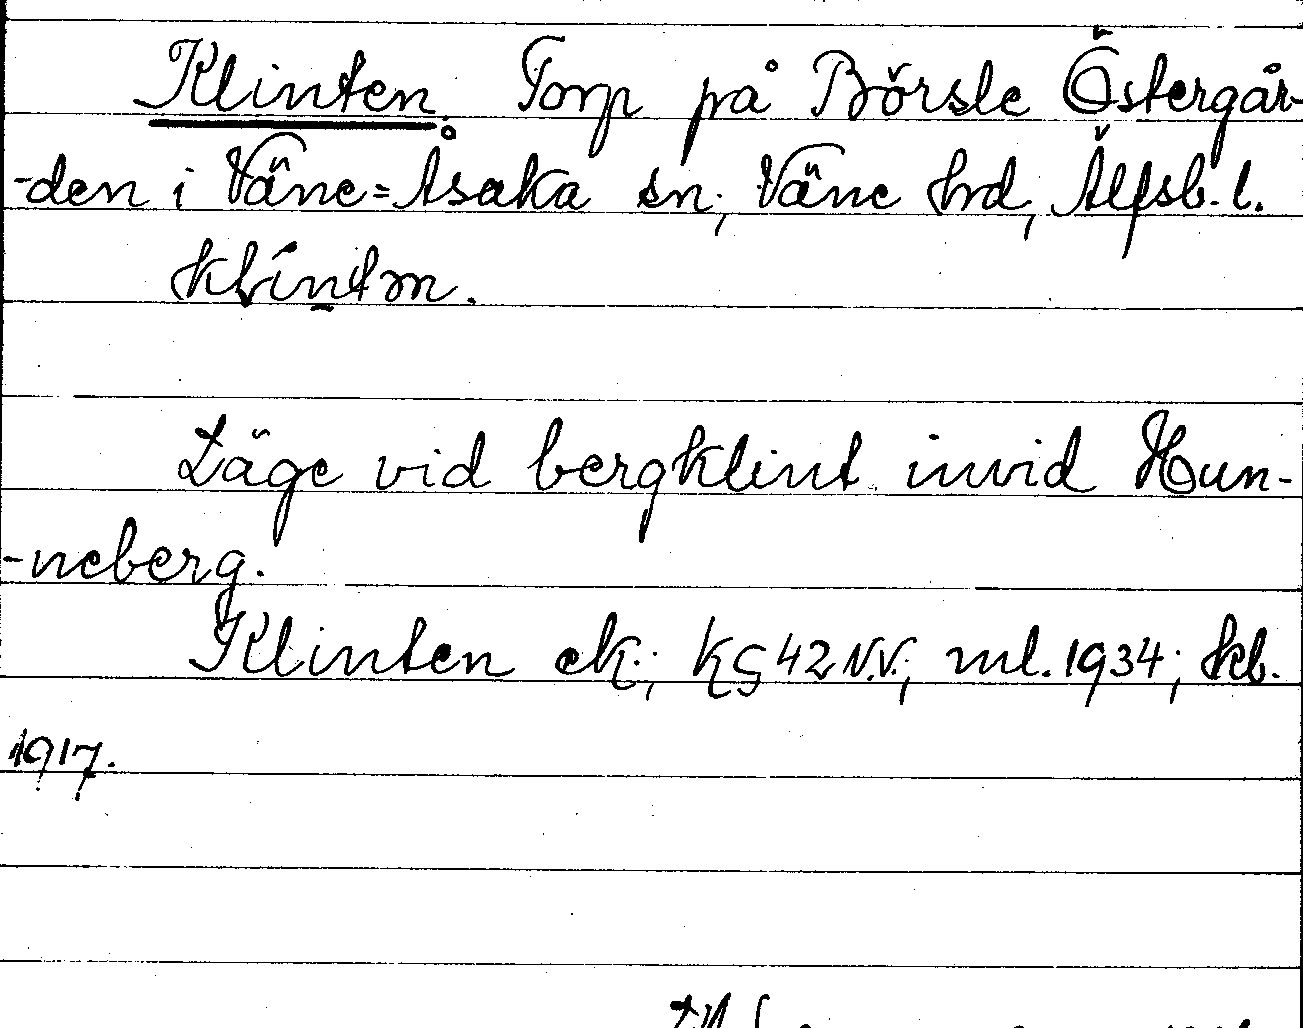 Klinten. Torp på Börsle Östergår-
-den i Väne=Åsaka sn, Väne hrd, Älfsb. l.
klíntm.
Läge vid bergklint invid Hun-
-neberg.
Klinten ek.; KG 42 N.V.; ml. 1934; kb.
1917.